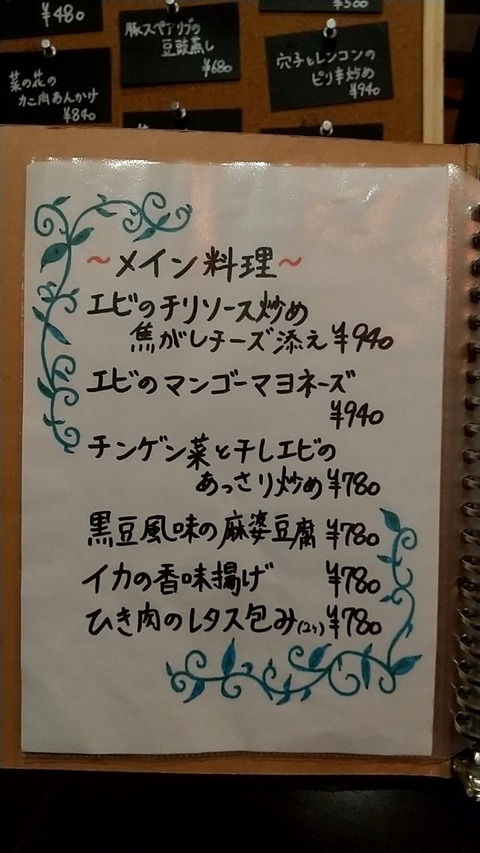 ¥480
豚スペアリブの
豆豉蒸し
¥680
¥500
穴子とレンコンの
ピリ辛炒め
¥940
菜の花の
カニ肉あんかけ
¥840
～メイン料理～
エビのチリソース炒め
焦がしチーズ添え ¥940
エビのマンゴーマヨネーズ
¥940
チンゲン菜と干しエビの
あっさり炒め ¥780
黒豆風味の麻婆豆腐 ¥780
イカの香味揚げ ¥780
ひき肉のレタス包み(2ヶ) ¥780